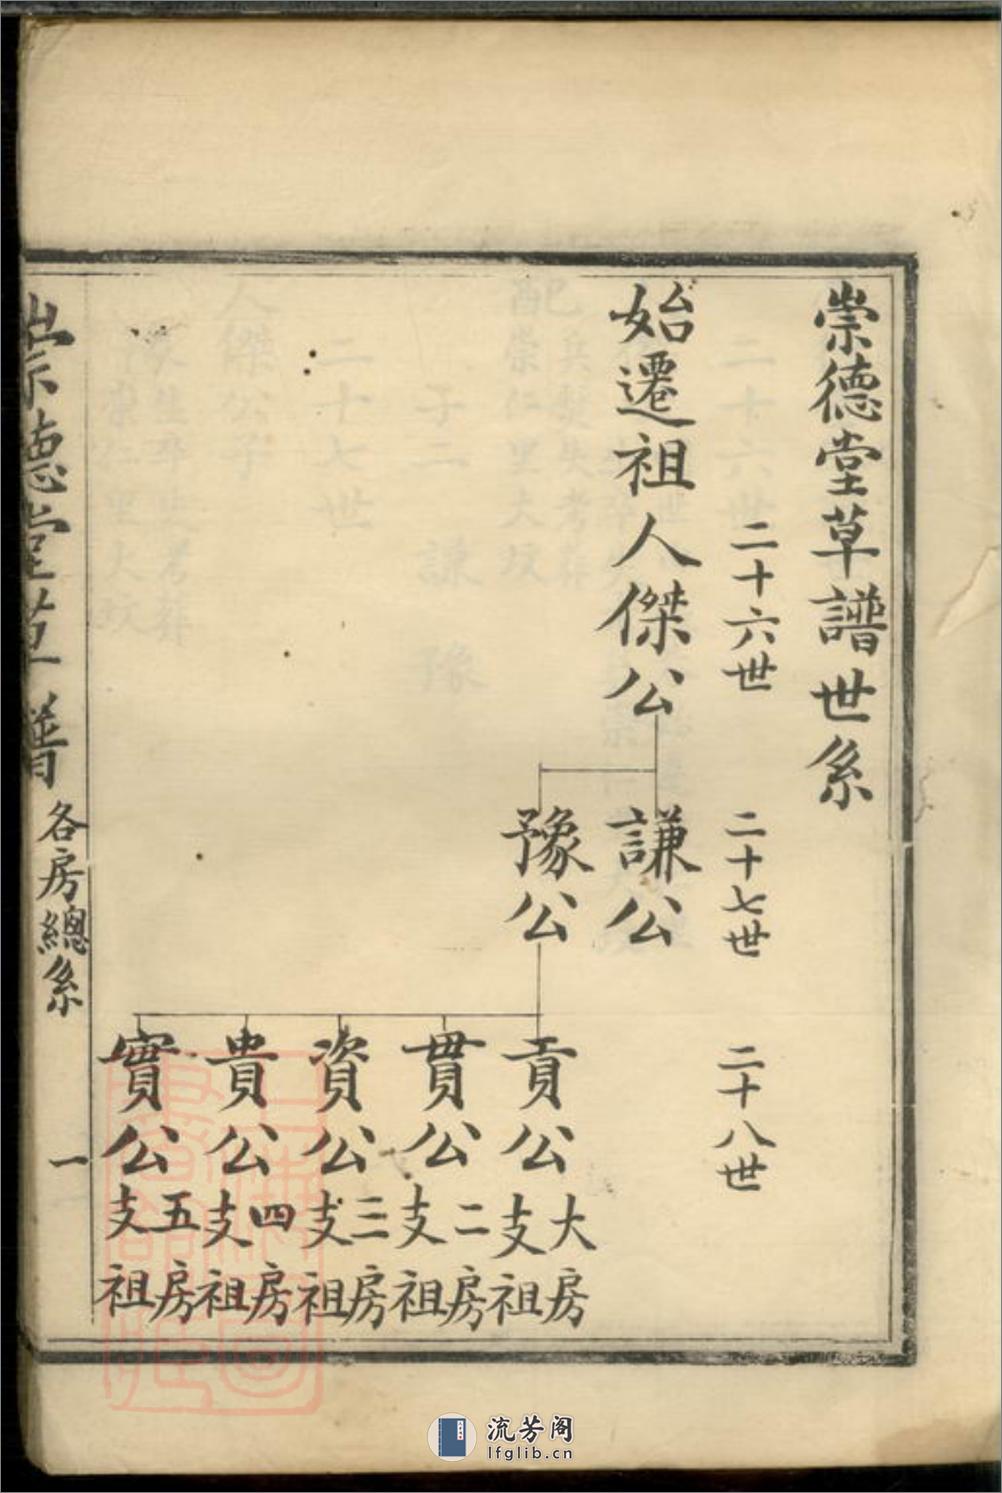 崇德堂草譜世系
二十六世
二十七世
二十八世
始遷祖人傑公
謙公
豫公
貢公
大房
支祖
貫公
二房
支祖
資公
三房
支祖
貴公
四房
支祖
實公
五房
支祖
崇德堂草譜
各房總系
一
流芳阁
lfglib.cn